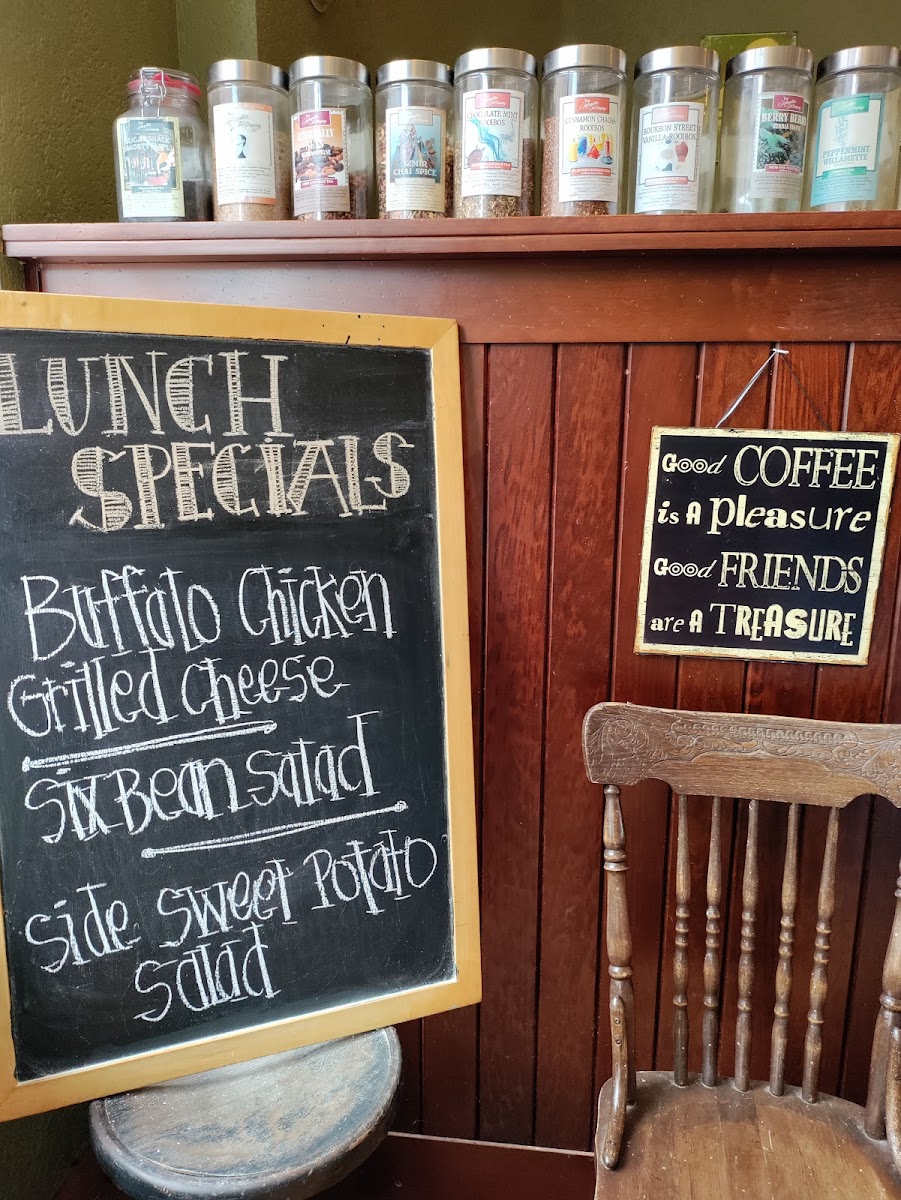 CHOCOLATE MINT
ROOIBOS
CINNAMON CHACHA
ROOIBOS
BOURBON STREET
VANILLA ROOIBOS
BERRY BERRY
PEPPERMINT
WILLAMETTE
IZMIR
CHAI SPICE
LUNCH
SPECIALS
Buffalo Chicken
Grilled Cheese
Six Bean Salad
Side Sweet Potato
Salad
Good COFFEE
is A pleasure
Good FRIENDS
are A TREASURE